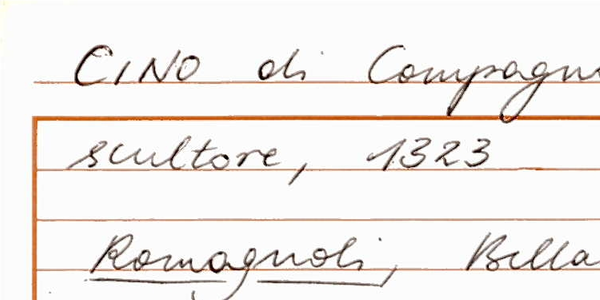 CINO di Compagn
scultore, 1323
Romagnoli, Bella